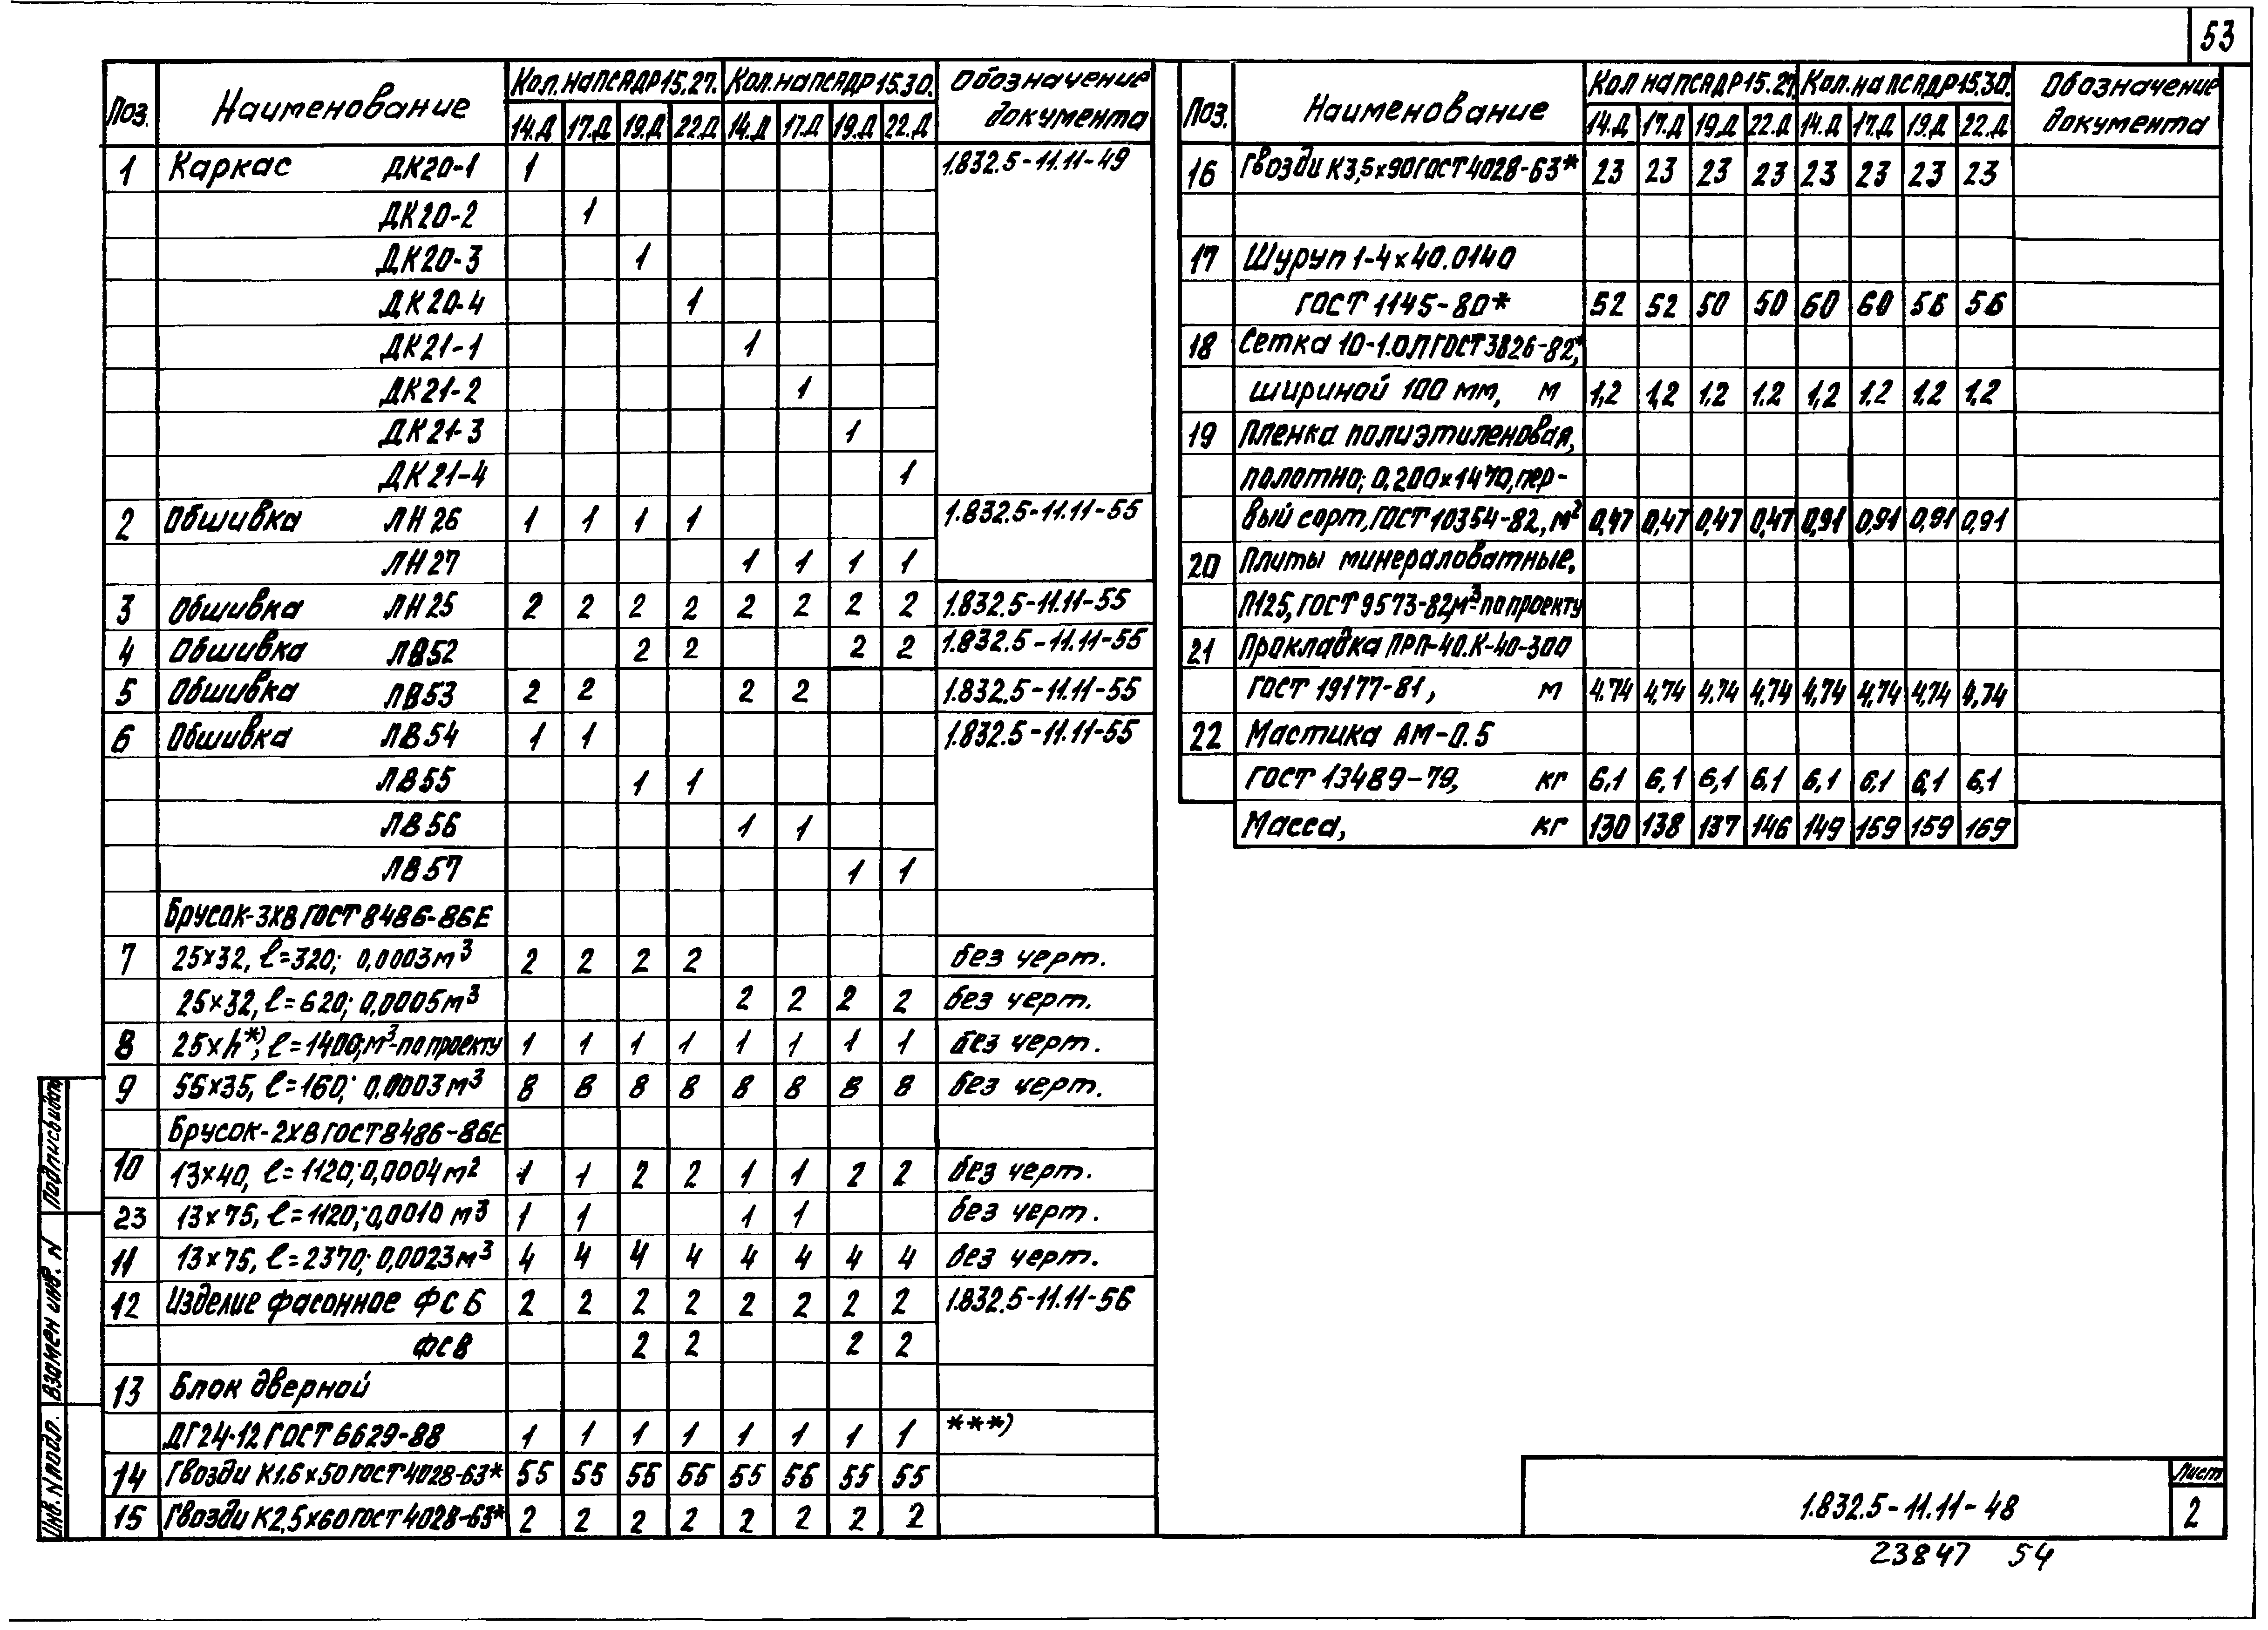 53
Поз. Наименование Кол. на ПСАДР15.27. Кол. на ПСАДР15.30. Обозначение документа
14.Д 17.Д 19.Д 22.Д 14.Д 17.Д 19.Д 22.Д
1 Каркас ДК20-1 1 1.832.5-11.11-49
ДК20-2 1
ДК20-3 1
ДК20-4 1
ДК21-1 1
ДК21-2 1
ДК21-3 1
ДК21-4 1
2 Обшивка ЛН26 1 1 1 1 1.832.5-11.11-55
ЛН27 1 1 1 1
3 Обшивка ЛН25 2 2 2 2 2 2 2 2 1.832.5-11.11-55
4 Обшивка ЛВ52 2 2 2 2 1.832.5-11.11-55
5 Обшивка ЛВ53 2 2 2 2 1.832.5-11.11-55
6 Обшивка ЛВ54 1 1 1.832.5-11.11-55
ЛВ55 1 1
ЛВ56 1 1
ЛВ57 1 1
Брусок-3ХВ ГОСТ 8486-86Е
7 25×32, ℓ=320; 0,0003м³ 2 2 2 2 без черт.
25×32, ℓ=620; 0,0005м³ 2 2 2 2 без черт.
8 25×h*); ℓ=1400;м³-по проекту 1 1 1 1 1 1 1 1 без черт.
9 55×35, ℓ=160; 0,0003м³ 8 8 8 8 8 8 8 8 без черт.
Брусок-2ХВ ГОСТ 8486-86Е
10 13×40, ℓ=1120; 0,0004м² 1 1 2 2 1 1 2 2 без черт.
23 13×75, ℓ=1120; 0,0010 м³ 1 1 1 1 без черт.
11 13×75, ℓ=2370; 0,0023м³ 4 4 4 4 4 4 4 4 без черт.
12 Изделие фасонное ФС Б 2 2 2 2 2 2 2 2 1.832.5-11.11-56
ФС В 2 2 2 2
13 Блок дверной
ДГ24-12 ГОСТ 6629-88 1 1 1 1 1 1 1 1 ***)
14 Гвозди К1.6×50 ГОСТ 4028-63* 55 55 55 55 55 55 55 55
15 Гвозди К2,5×60 ГОСТ 4028-63* 2 2 2 2 2 2 2 2
Поз. Наименование Кол на ПСАДР15.27. Кол. на ПСАДР15.30. Обозначение документа
14.Д 17.Д 19.Д 22.Д 14.Д 17.Д 19.Д 22.Д
16 Гвозди К3,5×90 ГОСТ 4028-63* 23 23 23 23 23 23 23 23
17 Шуруп 1-4×40.0140
ГОСТ 1145-80* 52 52 50 50 60 60 56 56
18 Сетка 10-1.0Л ГОСТ 3826-82*,
шириной 100 мм, м 1,2 1,2 1.2 1.2 1,2 1.2 1.2 1.2
19 Пленка полиэтиленовая,
полотно; 0,200×1470, пер-
вый сорт, ГОСТ 10354-82, м² 0,47 0,47 0,47 0,47 0,91 0,91 0,91 0,91
20 Плиты минераловатные,
П125, ГОСТ 9573-82,м³-по проекту
21 Прокладка ПРП-40.К-40-300
ГОСТ 19177-81, м 4.74 4,74 4,74 4,74 4,74 4,74 4,74 4,74
22 Мастика АМ-0.5
ГОСТ 13489-79, кг 6,1 6,1 6,1 6,1 6,1 6,1 6,1 6,1
Масса, кг 130 138 137 146 149 159 159 169
Подпись и дата
Взамен инв. N
Инв. N подл.
1.832.5-11.11-48
Лист
2
23847 54